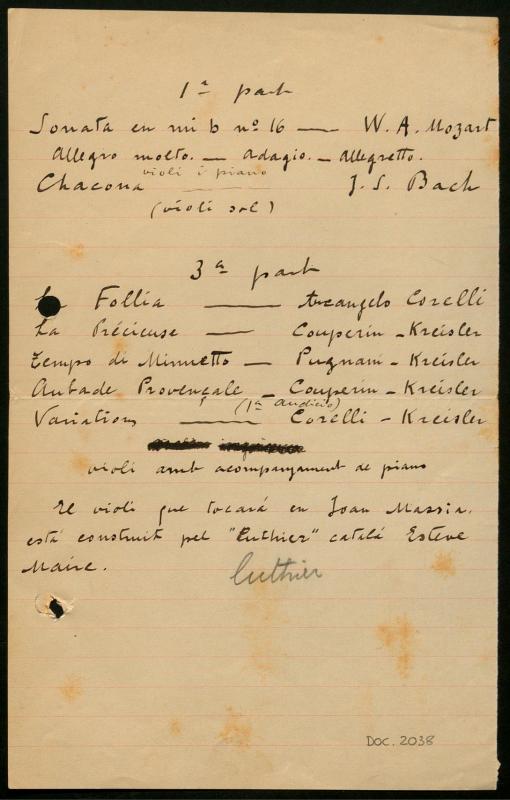 1ª part
Sonata en mi b nº 16 — W. A. Mozart
Allegro molto. — Adagio. — Allegretto.
violí i piano
Chacona — J. S. Bach
(violí sol)
3ª part
La Follia — Arcangelo Corelli
La Précieuse — Couperin - Kreisler
Tempo di Minuetto — Pugnani - Kreisler
Aubade Provençale — Couperin - Kreisler
(1ª audició)
Variations — Corelli - Kreisler
violí amb acompanyament de piano
El violí que tocará en Joan Massia.
está construit pel "luthier" catalá Esteve
Maire.
luthier
DOC. 2038